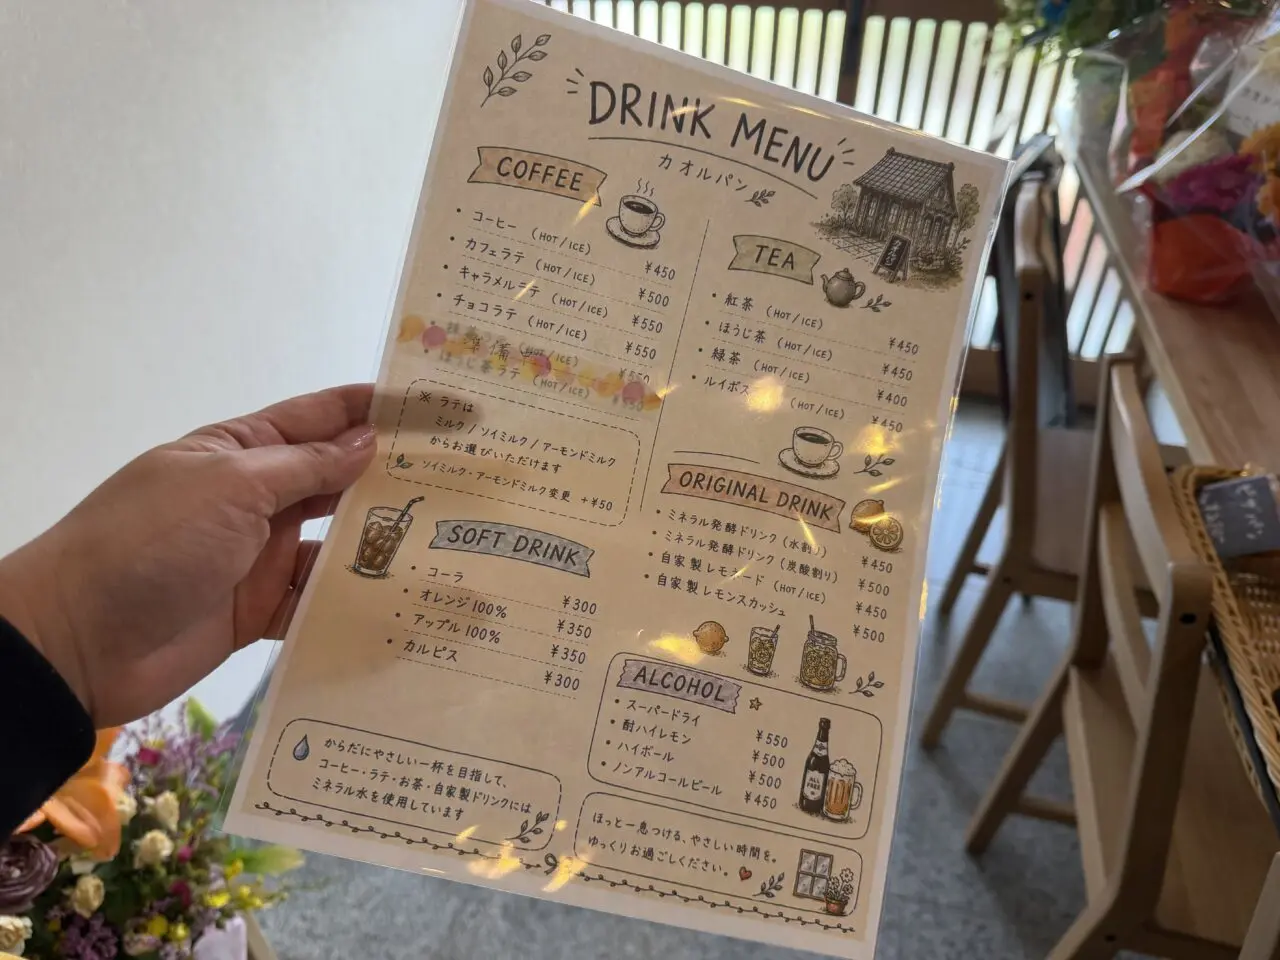 DRINK MENU
カオルパン
COFFEE
・コーヒー (HOT/ICE) ¥450
・カフェラテ (HOT/ICE) ¥500
・キャラメルラテ (HOT/ICE) ¥550
・チョコラテ (HOT/ICE) ¥550
準備中
(HOT/ICE) ¥550
・ほうじ茶ラテ (HOT/ICE)
※ ラテは
ミルク / ソイミルク / アーモンドミルク
からお選びいただけます
ソイミルク・アーモンドミルク変更 +¥50
SOFT DRINK
・コーラ ¥300
・オレンジ100% ¥350
・アップル100% ¥350
・カルピス ¥300
からだにやさしい一杯を目指して、
コーヒー・ラテ・お茶・自家製ドリンクには
ミネラル水を使用しています
TEA
・紅茶 (HOT/ICE) ¥450
・ほうじ茶 (HOT/ICE) ¥450
・緑茶 (HOT/ICE) ¥400
・ルイボス (HOT/ICE) ¥450
ORIGINAL DRINK
・ミネラル発酵ドリンク(水割り) ¥450
・ミネラル発酵ドリンク(炭酸割り) ¥500
・自家製レモネード (HOT/ICE) ¥450
・自家製レモンスカッシュ ¥500
ALCOHOL
・スーパードライ ¥550
・酎ハイレモン ¥500
・ハイボール ¥500
・ノンアルコールビール ¥450
ALL
FREE
ほっと一息つける、やさしい時間を。
ゆっくりお過ごしください。